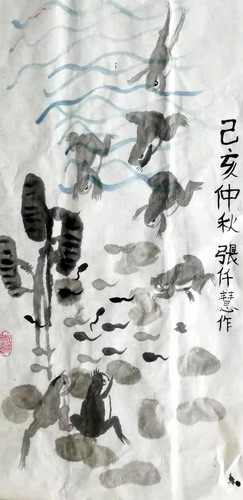 己亥仲秋 張仟慧作